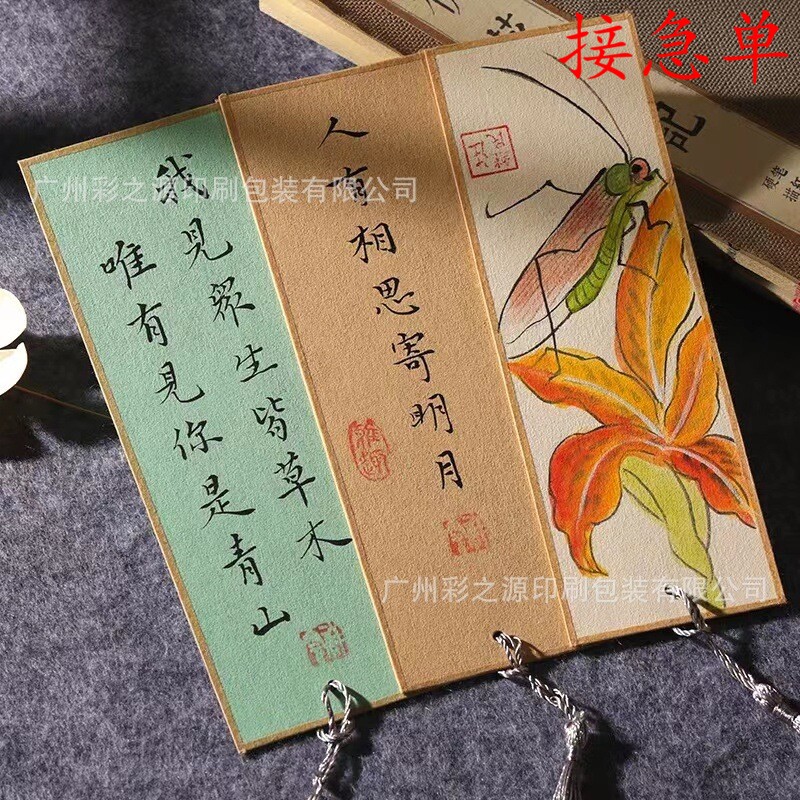 接急单
我見眾生皆草木
唯有見你是青山
人有相思寄明月
雅趣
記
硬笔
描红
广州彩之源印刷包装有限公司
广州彩之源印刷包装有限公司